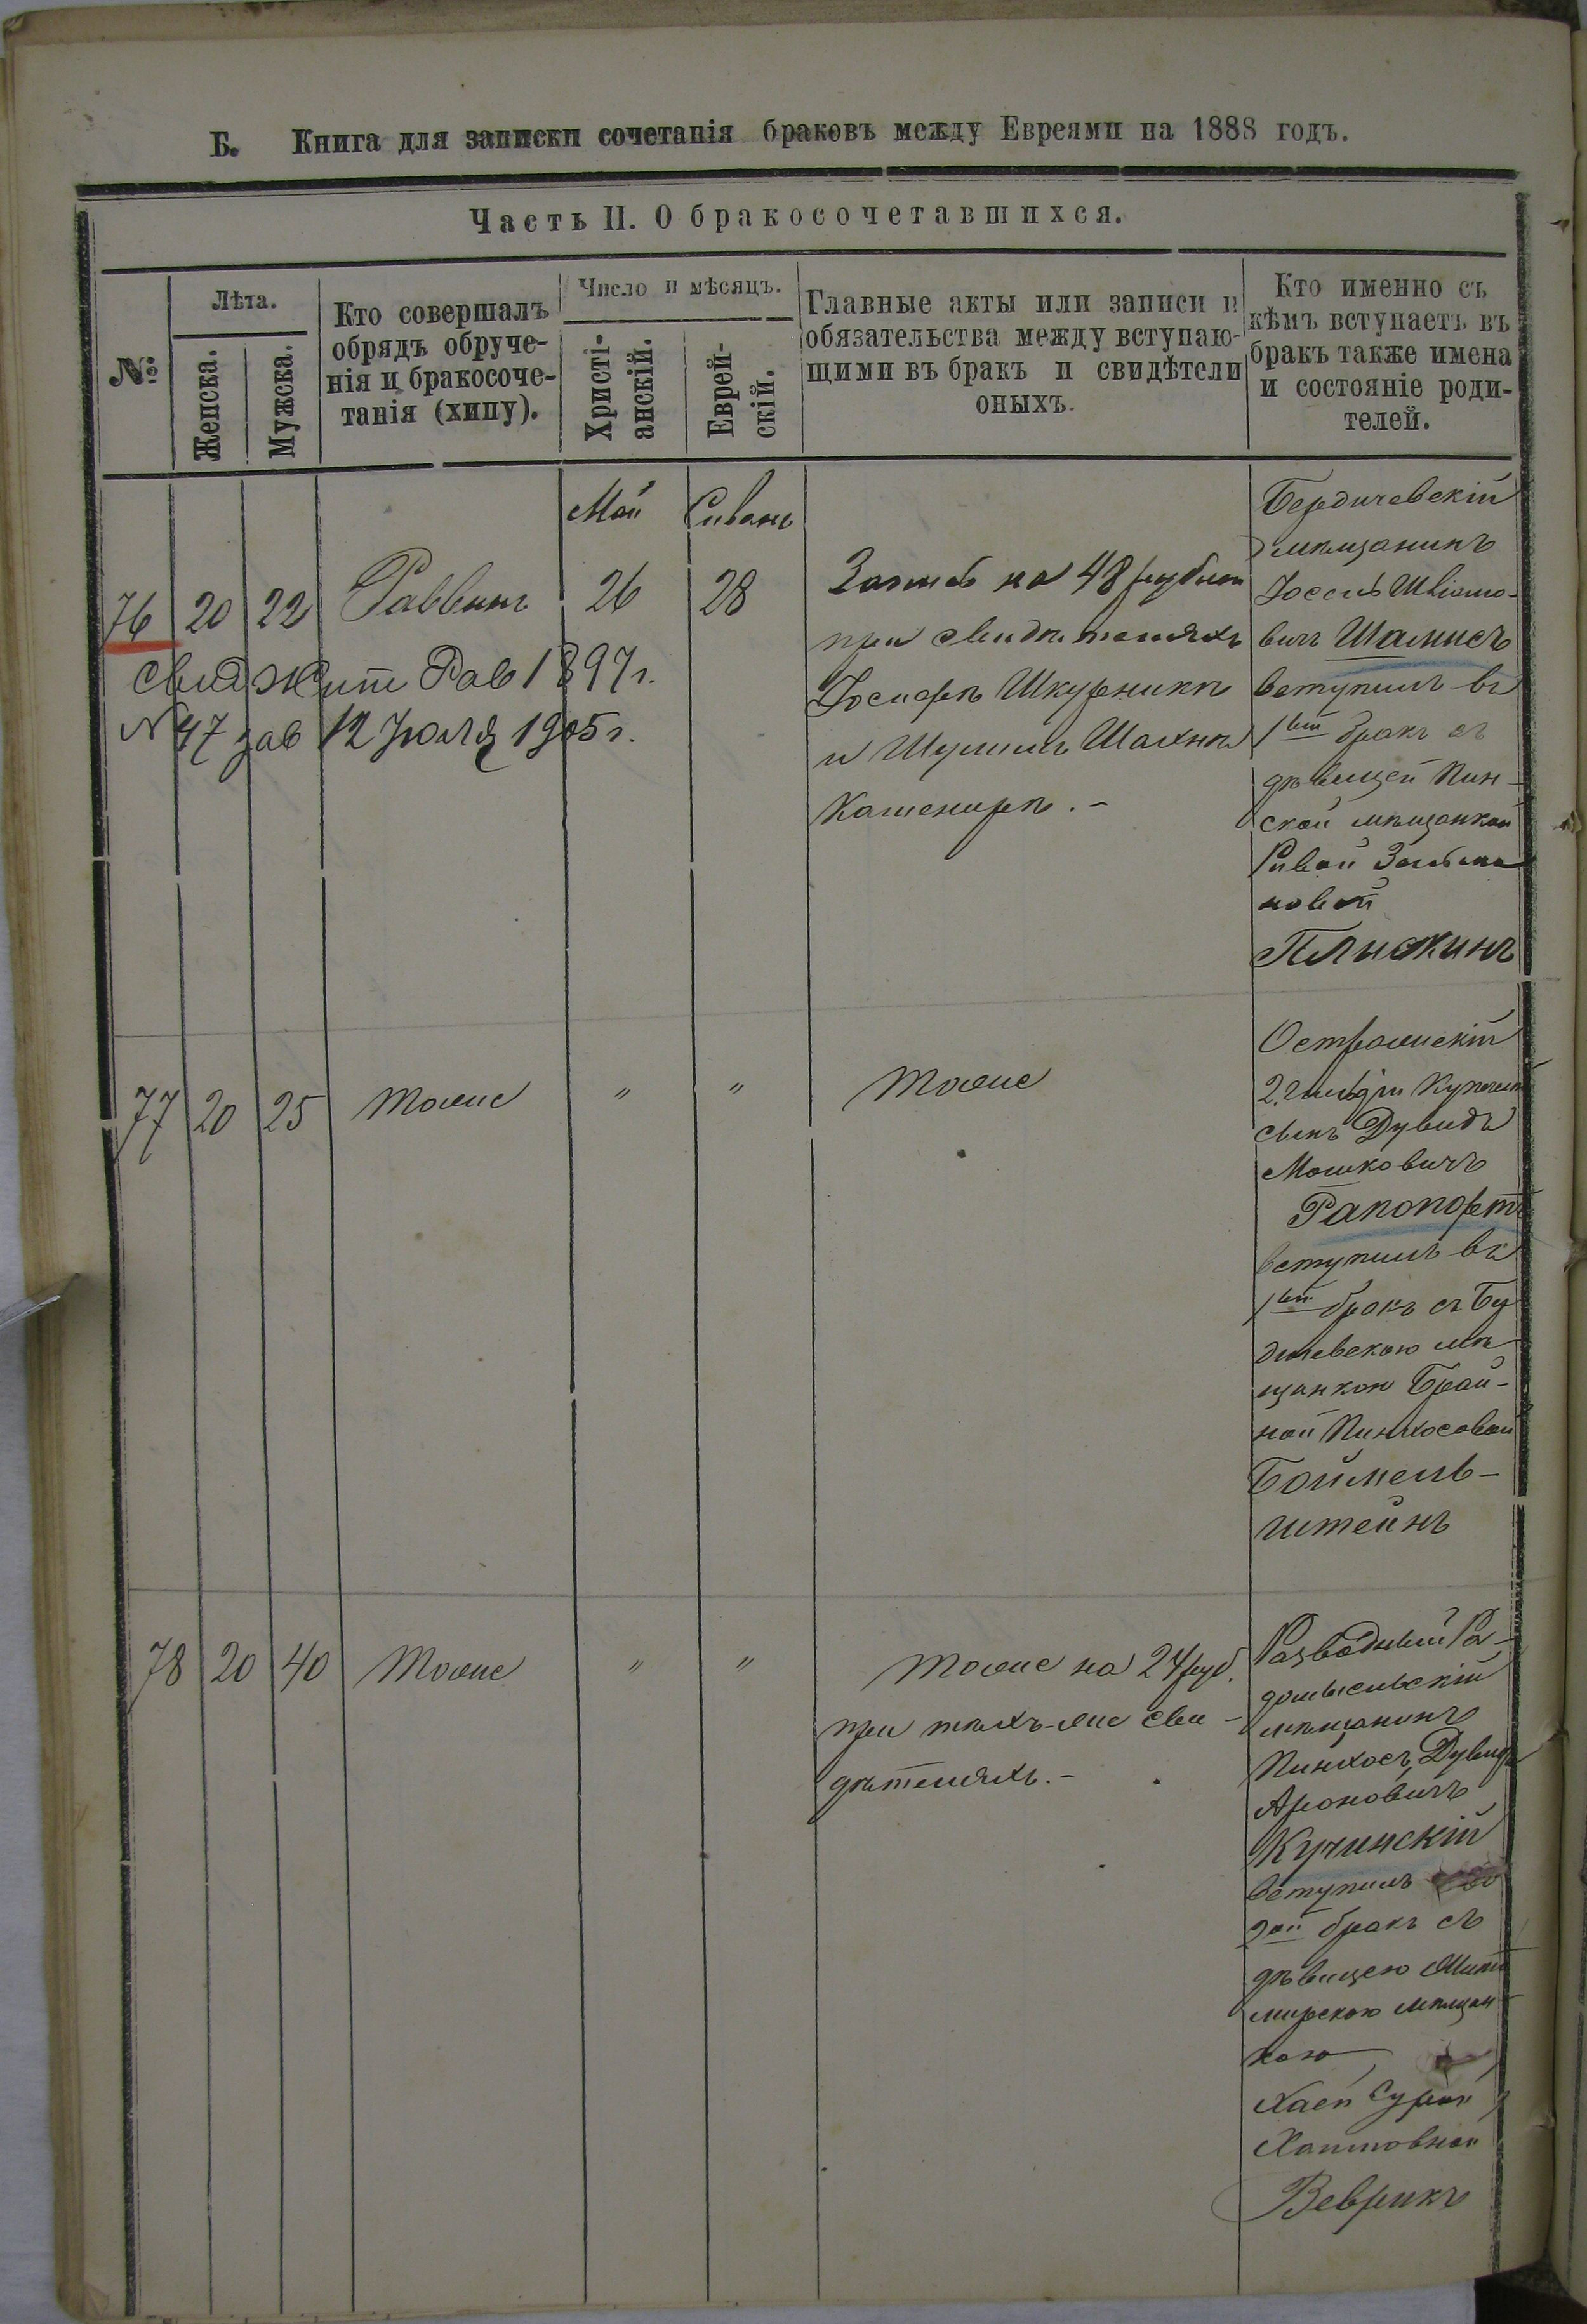 Б. Книга для записки сочетанія браковъ между Евреями на 1888 годъ.
Часть II. О бракосочетавшихся.
№
Лѣта.
Женска.
Мужска.
Кто совершалъ
обрядъ обруче-
нія и бракосоче-
танія (хипу).
Число и мѣсяцъ.
Христі-
анскій.
Еврей-
скій.
Главные акты или записи и
обязательства между вступаю-
щими въ бракъ и свидѣтели
оныхъ.
Кто именно съ
кѣмъ вступаетъ въ
бракъ также имена
и состояніе роди-
телей.
76
20
22
Раввинъ
Май
26
Сиванъ
28
Запись на 48 рублей
при свидѣтеляхъ
Іосифѣ Шкурникѣ
и Шулимъ Шахнѣ
Каменирѣ.-
Бердичевскій
мѣщанинъ
Іоссель
вичъ Шамисъ
вступилъ въ
1вый бракъ съ
дѣвицей Пин-
ской мѣщанкой
Ривой Зельма
новой
Плискинъ
Свид Жит Рав 1897г.
№47 зав 12 Іюля 1905г.
77
20
25
тоже
"
"
тоже
Острожскій
2. гильдіи Купеческ
сынъ Дувидъ
Мошковичъ
Рапопортъ
вступилъ въ
1вый бракъ съ Бер
дичевскою мѣ
щанкою Брай-
ной Пинхосовой
Боймель-
штейнъ
78
20
40
тоже
"
"
тоже на 24 руб.
при тѣхъ-же сви-
дѣтеляхъ.-
Разводный Ра-
домысльскій
мѣщанинъ
Пинхосъ Дувидъ
Ароновичъ
Кучинскій
вступилъ во
2ой бракъ съ
дѣвицею Жито
мирскою мѣщан
кою
Хаей Сурой
Хаимовной
Веврикъ